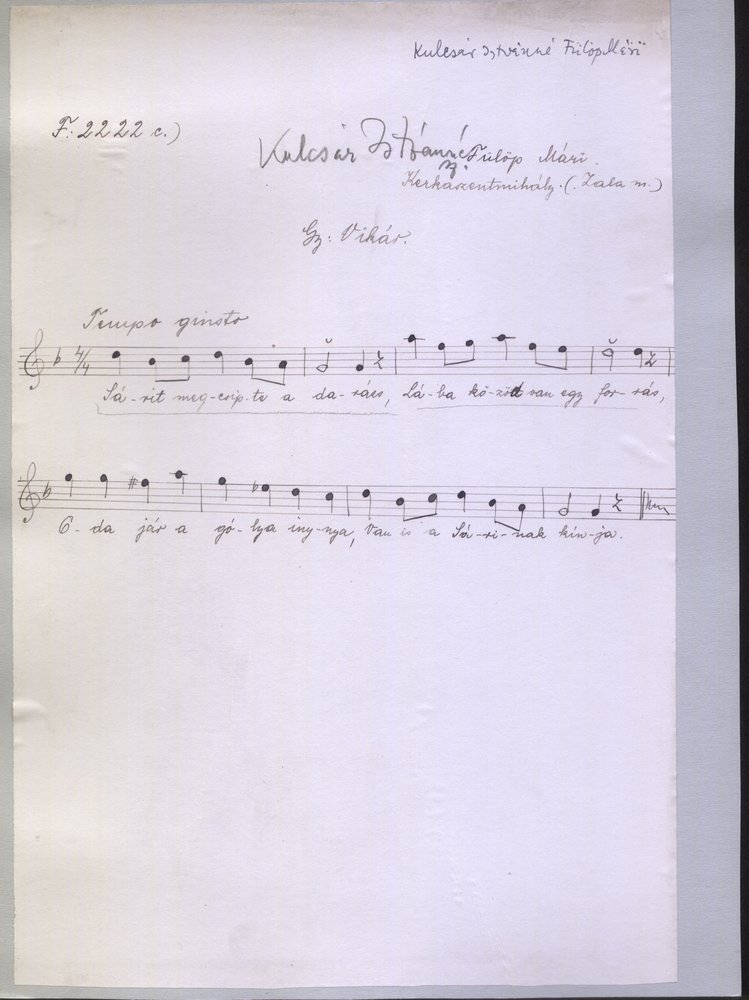 Kulcsár Istvánné Fülöp Mári
F: 2222 c.)
Kulcsár Istvánné Fülöp Mári.
Kerkaszentmihály. (Zala m.)
Gy: Vikár.
Tempo giusto
4/4
Sá-rit meg-csíp-te a da-rázs, Lá-ba kö-zött van egy for-rás,
O-da jár a gó-lya iny-nya, Van is a Sá-ri-nak kín-ja.